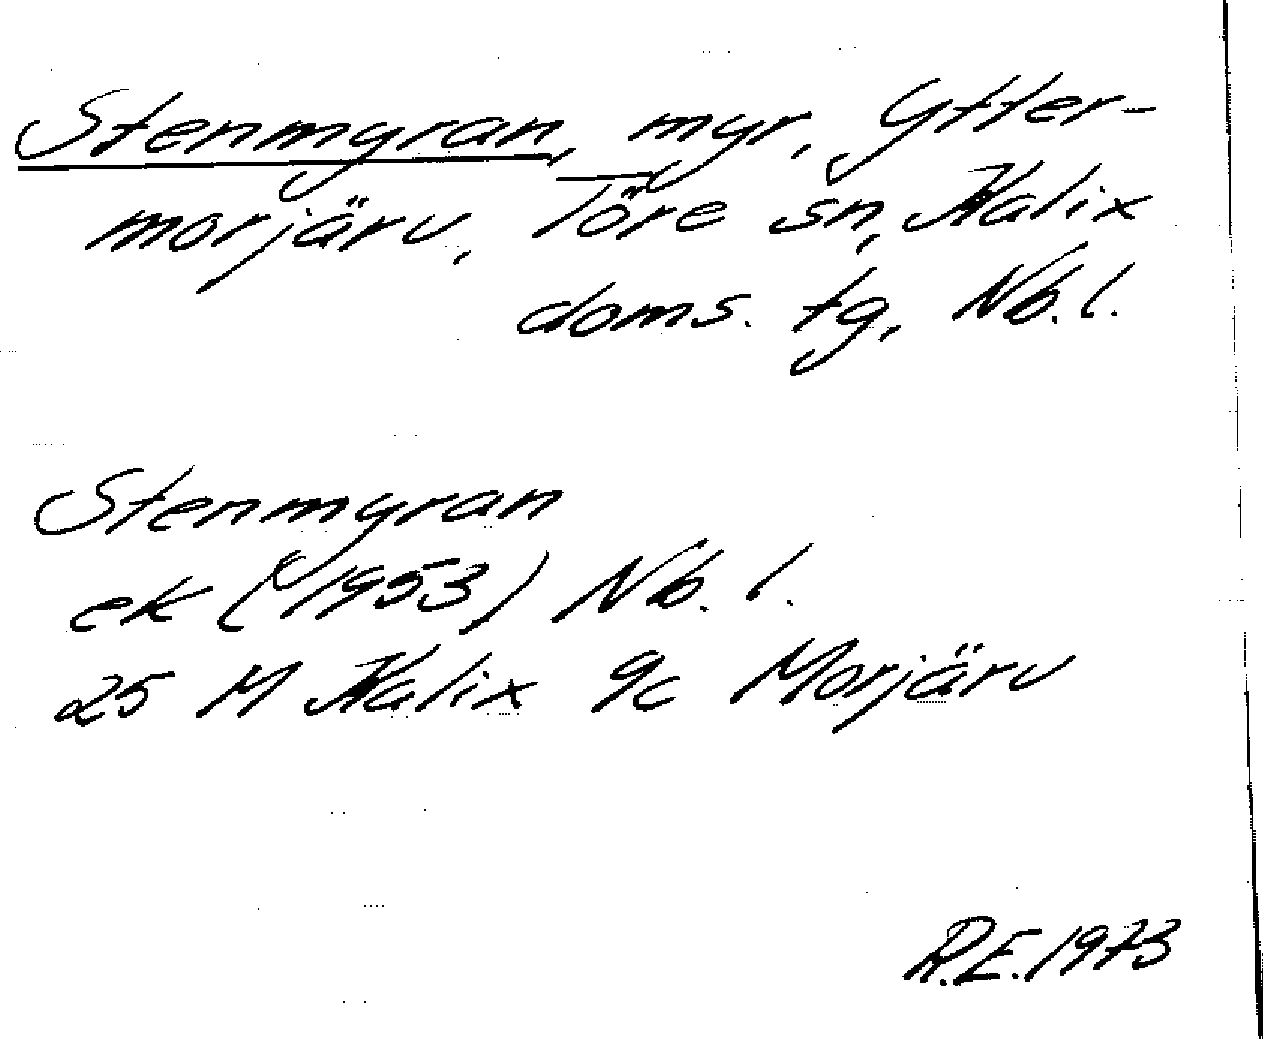 Stenmyran, myr, Ytter-
morjärv, Töre sn, Kalix
doms. tg, Nb. l.
Stenmyran
ek (1953) Nb. l.
25 M Kalix 9c Morjärv
R.E. 1973